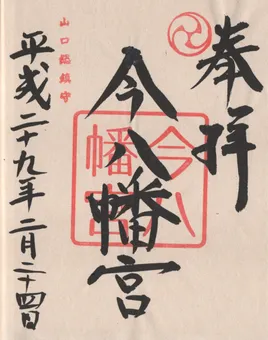 奉拝
今八幡宮
今八幡宮
山口総鎮守
平成二十九年二月二十四日